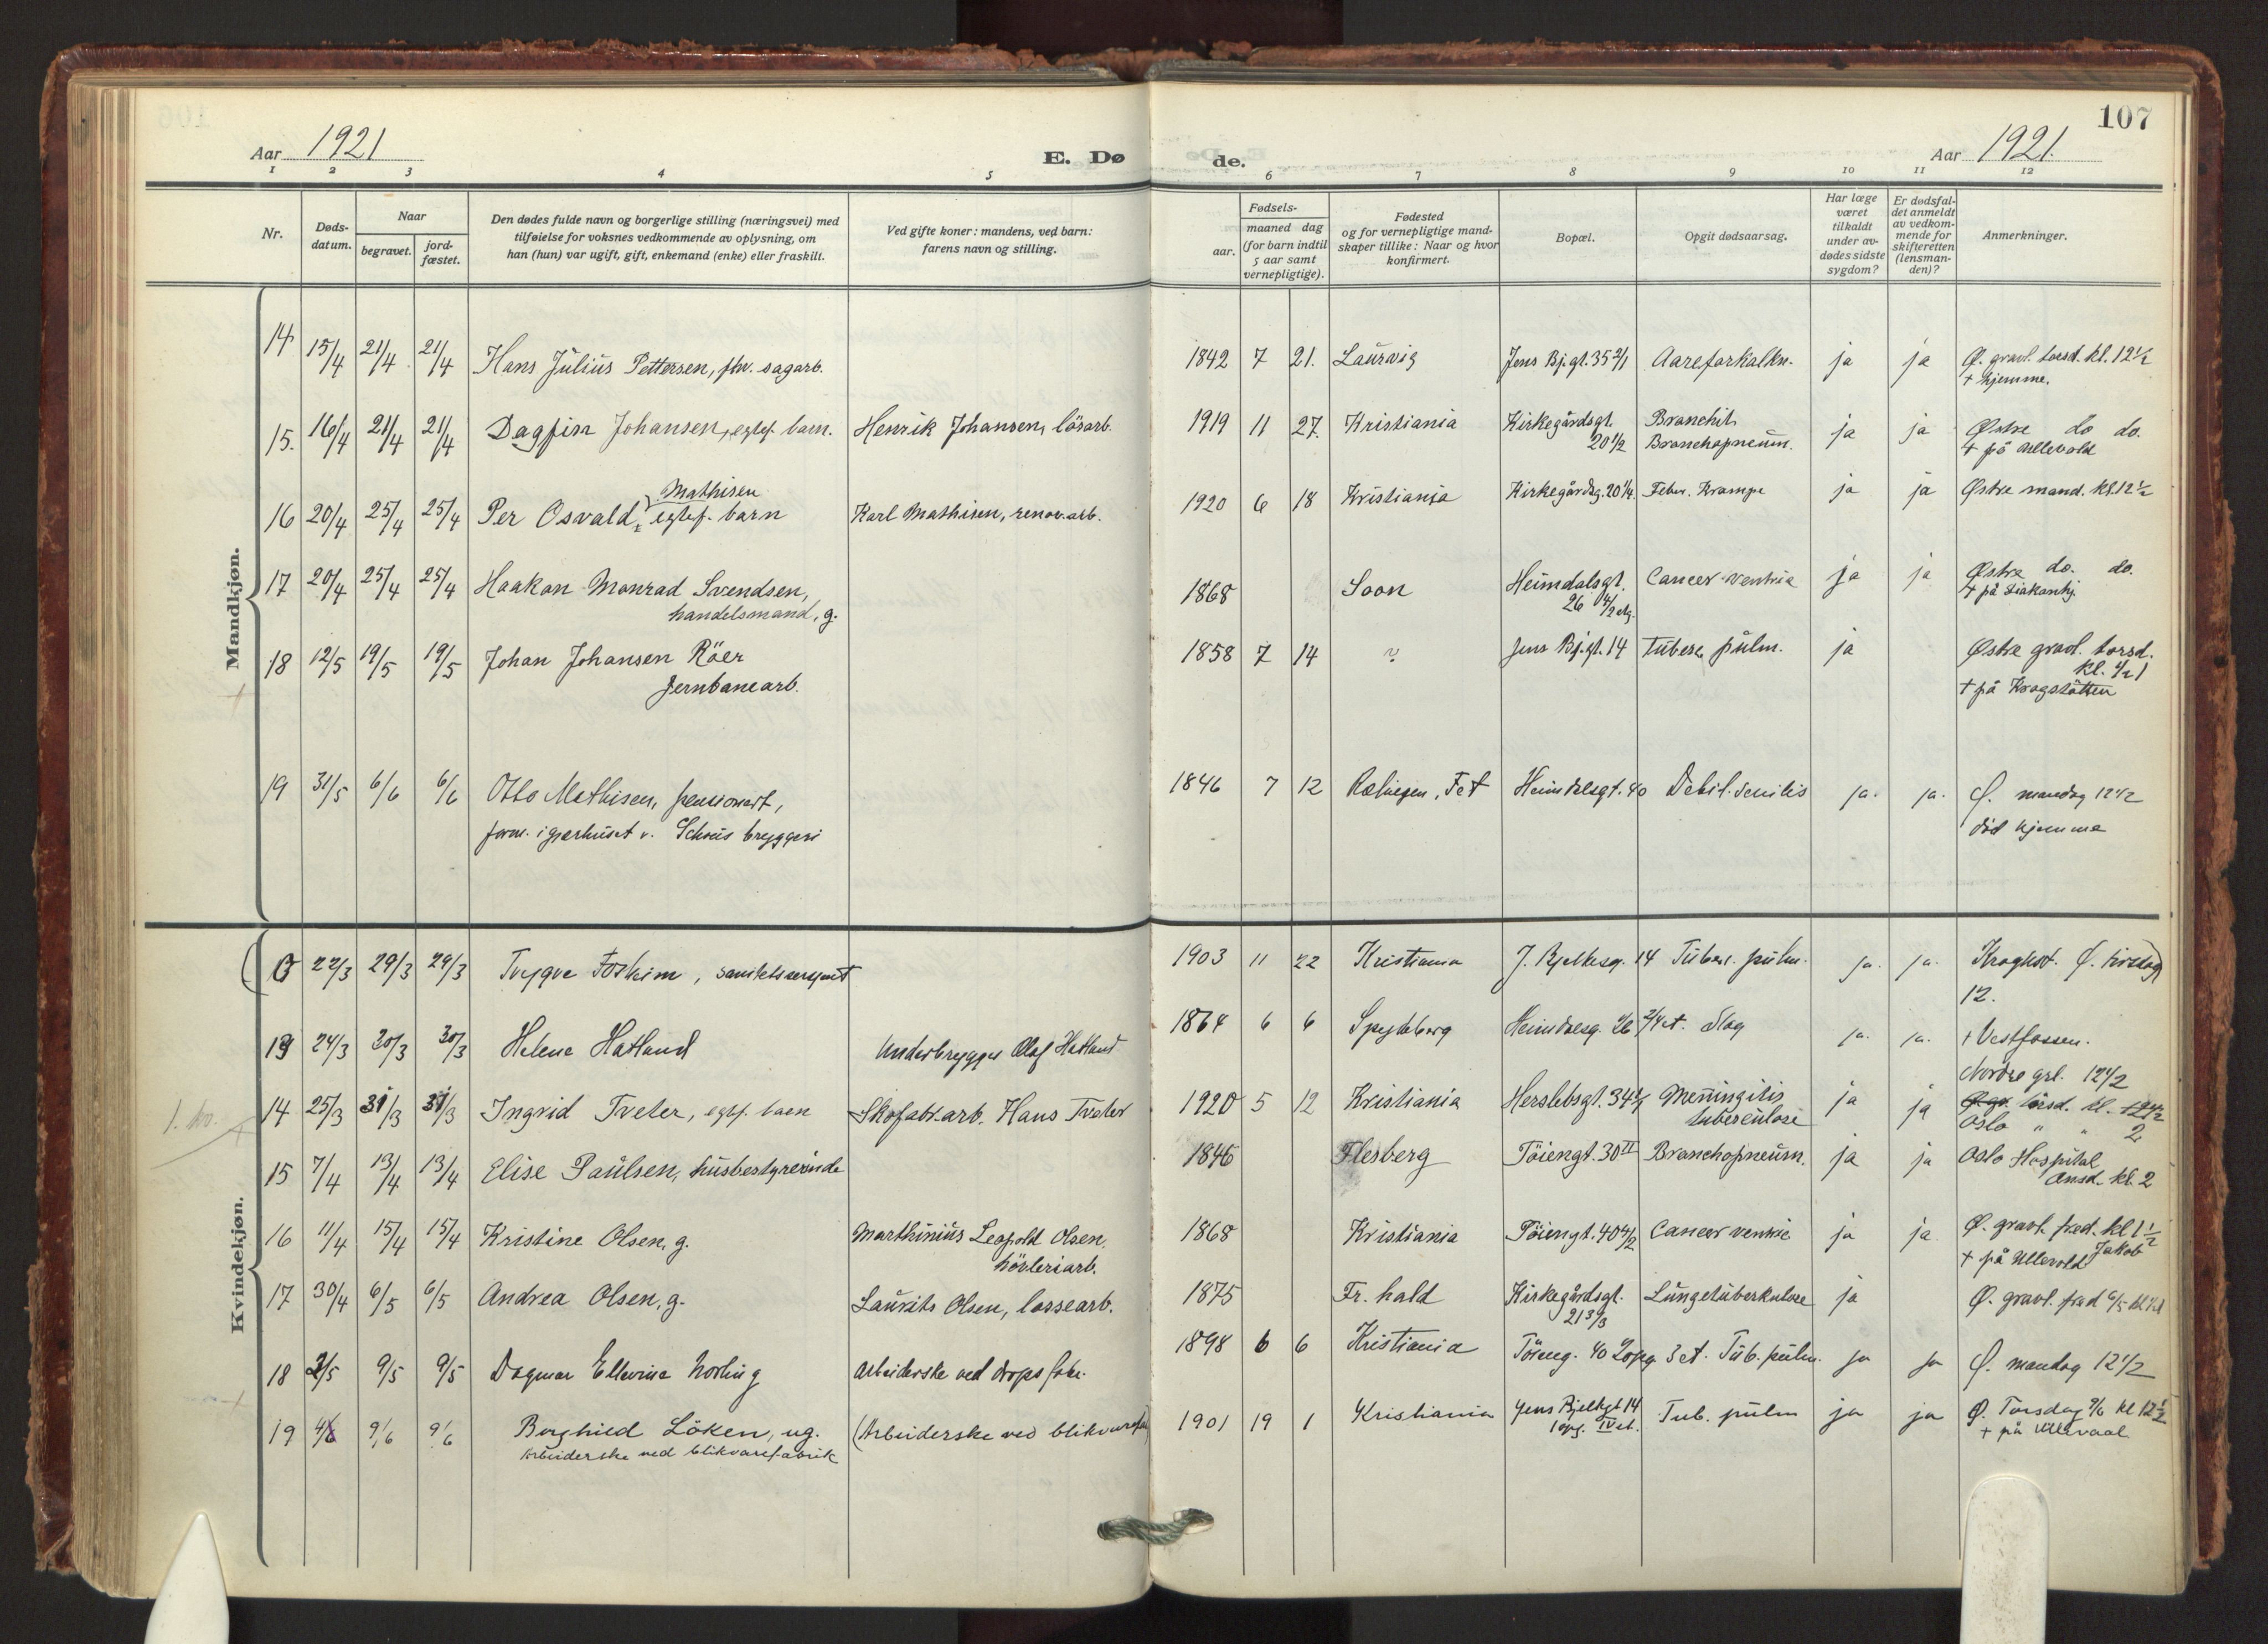 107
Aar 1921
E. Dø
de.
Aar 1921.
1 2 3 4 5 6 7 8 9 10 11 12
Nr.
Døds-
datum.
Naar
begravet.
jord-
fæstet.
Den dødes fulde navn og borgerlige stilling (næringsvei) med
tilføielse for voksnes vedkommende av oplysning, om
han (hun) var ugift, gift, enkemand (enke) eller fraskilt.
Ved gifte koner: mandens, ved barn:
farens navn og stilling.
aar.
Fødsels-
maaned dag
(for barn indtil
5 aar samt
vernepligtige).
Fødested
og for vernepligtige mand-
skaper tillike: Naar og hvor
konfirmert.
Bopæl.
Opgit dødsaarsag.
Har læge
været
tilkaldt
under av-
dødes sidste
sygdom?
Er dødsfal-
det anmeldt
av vedkom-
mende for
skifteretten
(lensman-
den)?
Anmerkninger.
Mandkjøn.
14 15/4 21/4 21/4 Hans Julius Pettersen, fhv. sagarb. 1842 7 21. Laurvig Jens Bj.gt. 35 2/1 Aareforkalkn. ja ja Ø. gravl. torsd. kl. 12 1/2
+ hjemme.
15. 16/4 21/4 21/4 Dagfinn Johansen, egtef. barn. Henrik Johansen, lösarb. 1919 11 27. Kristiania Kirkegårdsgt. Bronchit, ja ja Østre do do.
20 1/2 Bronchopneum. + på Ullevold
Mathisen
16 20/4 25/4 25/4 Per Osvald, egtef. barn Karl Mathisen, renov.arb. 1920 6 18 Kristiania Kirkegårdsg. 20 1/4. Feber. Krampe ja ja Østre mand. kl. 12 1/2
17 20/4 25/4 25/4 Haakon Monrad Svendsen, 1868 Soon Heimdalsgt. Cancer ventric ja ja Østre do. do.
handelsmand, g. 26 4/2 etg. + på Diakonhj.
18 12/5 19/5 19/5 Johan Johansen Röer 1858 7 14 ? Jens Bj.gt. 14 Tuberc. pulm. ja Østre gravl. torsd.
Jernbanearb. kl. 1/2 1
+ på Krogstötten
19 31/5 6/6 6/6 Otto Mathisen, pensionert, 1846 7 12 Rælingen, Fet Heimdalsgt. 40 Debil. senilis ja. ja. Ø. mandag 12 1/2
form. i gjærhuset v. Schous bryggeri död hjemme
Kvindekjøn.
22/3 29/3 29/3 Trygve Foskim, sanitetssersjant 1903 11 22 Kristiania J. Bjelkesg. 14 Tuberc. pulm. ja. ja. Kroghst. Ø. tirsdag
12.
13 24/3 30/3 30/3 Helene Hatland Underbrygger Olaf Hatland 1864 6 6 Spydeberg Heimdalsg. 26 2/4 et. Slag ja. ja. + Vestfossen.
Nordre grl. 12 1/2
1. kv.
14 25/3 31/3 31/3 Ingrid Tveter, egtef. barn Skofabr.arb. Hans Tveter 1920 5 12 Kristiania Herslebsgt. 34 Meningitis ja ja Ø. gr. torsd. kl. 12 1/2
tuberculose Oslo " " 2
15 7/4 13/4 13/4 Elise Paulsen, husbestyrerinde 1846 Flesberg Töiengt. 30 II Bronchopneum. ja ja Oslo Hospital
onsd. kl. 2
16 11/4 15/4 15/4 Kristine Olsen, g. Marthinius Leopold Olsen. 1868 Kristiania Töiengt. 40 4/2 Cancer ventric ja ja Ø. gravl. fred. kl 1 1/2
hövleriarb. + på Ullevold Jakob
17 30/4 6/5 6/5 Andrea Olsen, g. Laurits Olsen, lossearb. 1875 Fr. hald Kirkegårdsgt. Lungetuberkulose ja Ø. gravl. fred 6/5
21 3/3
18 2/5 9/5 9/5 Dagmar Ellevine Norling Arbeiderske ved dropsfabr. 1898 6 6 Kristiania Töieng. 40 2 opg 3 et. Tub. pulm. ja ja Ø. mandag 12 1/2
19 4/6 9/6 9/6 Borghild Löken, ug. (Arbeiderske ved blikvaref. 1901 19 1 Kristiania Jens Bjelkgt 14 Tub. pulm ja ja Ø. Torsdag 9/6 kl 12 1/2
Arbeiderske ved blikvarefabrik 1 opg. IV et. + på Ullevaal